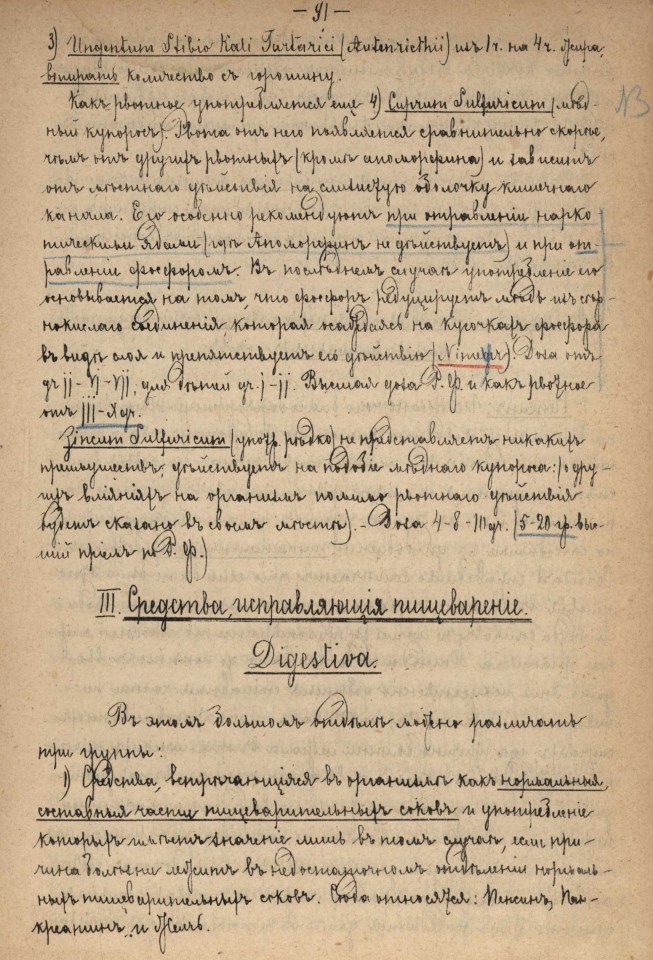 — 91 —
3) Ungentum Stibio Kali Tartarici (Autenriethii) изъ 1 ч. на 4 ч. Жира,
втирать количество съ горошину.
Какъ рвотное употребляется еще 4) Cuprum Sulfuricum (мѣд-
ный купоросъ). Рвота отъ него появляется сравнительно скорѣе,
чѣмъ отъ другихъ рвотныхъ (кромѣ апоморфина) и зависитъ
отъ мѣстнаго дѣйствія на слизистую оболочку кишечнаго
канала. Его особенно рекомендуютъ при отравленіи нарко
тическими ядами (гдѣ Апоморфинъ не дѣйствуетъ) и при от-
равленіи фосфоромъ. Въ послѣднемъ случаѣ употребленіе его
основывается на томъ, что фосфоръ редуцируетъ мѣдь изъ сѣр-
нокислаго соединенія, которая осаждаясь на кусочкахъ фосфора
въ видѣ слоя и препятствуетъ его дѣйствію. Доза отъ
gr. ii - vi - vii, для дѣтей gr. i - ii. Высшая доза Р. Ф. и какъ рвотное
отъ III - X gr.
Zincum Sulfuricum (употр. рѣдко) не представляетъ никакихъ
преимуществъ, дѣйствуетъ на подобіе мѣднаго купороса: (о дру-
гихъ вліяніяхъ на организмъ помимо рвотнаго дѣйствія
будетъ сказано въ своемъ мѣстѣ). - Доза 4 - 8 - 10 gr. (5-20 гр. выс-
шій пріемъ по Р. Ф.)
III. Средства, исправляющія пищевареніе.
Digestiva.
Въ этомъ большомъ отдѣлѣ можно различать
три группы:
1) Средства, встрѣчающіяся въ организмѣ какъ нормальныя,
составныя части пищеварительныхъ соковъ и употребленіе
которыхъ имѣетъ значеніе лишь въ томъ случаѣ, если при-
чина болѣзни лежитъ въ недостаточномъ отдѣленіи нормаль-
ныхъ пищеварительныхъ соковъ. Сюда относятся: Пепсинъ, Пан-
креатинъ, и Желчь.